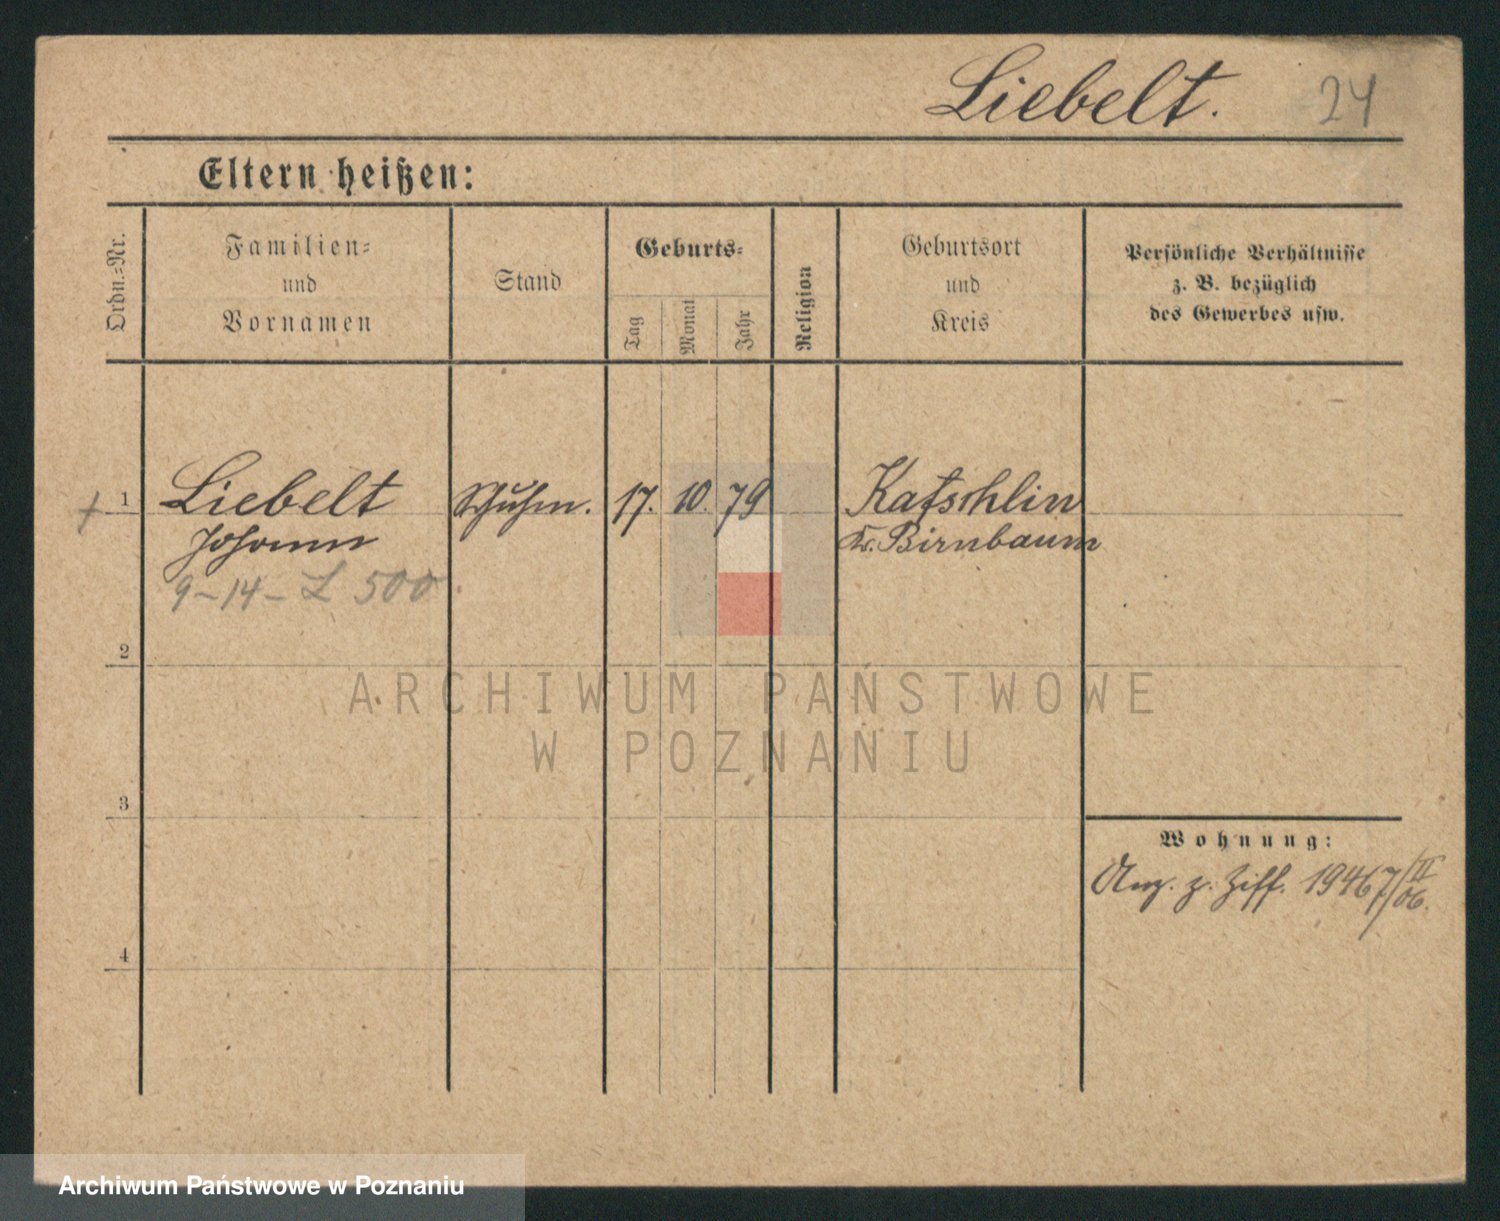 Liebelt. 24
Eltern heißen:
Ordn.-Nr.
Familien-
und
Vornamen
Stand
Geburts-
Tag
Monat
Jahr
Religion
Geburtsort
und
Kreis
Persönliche Verhältnisse
z. B. bezüglich
des Gewerbes usw.
1 Liebelt Schuhm. 17. 10. 79 Katschlin
Johann Kr. Birnbaum
9-14- L 500
2
ARCHIWUM PAŃSTWOWE
W POZNANIU
3
Wohnung:
Anz. z. Ziff. 1946 7/II 06.
4
Archiwum Państwowe w Poznaniu